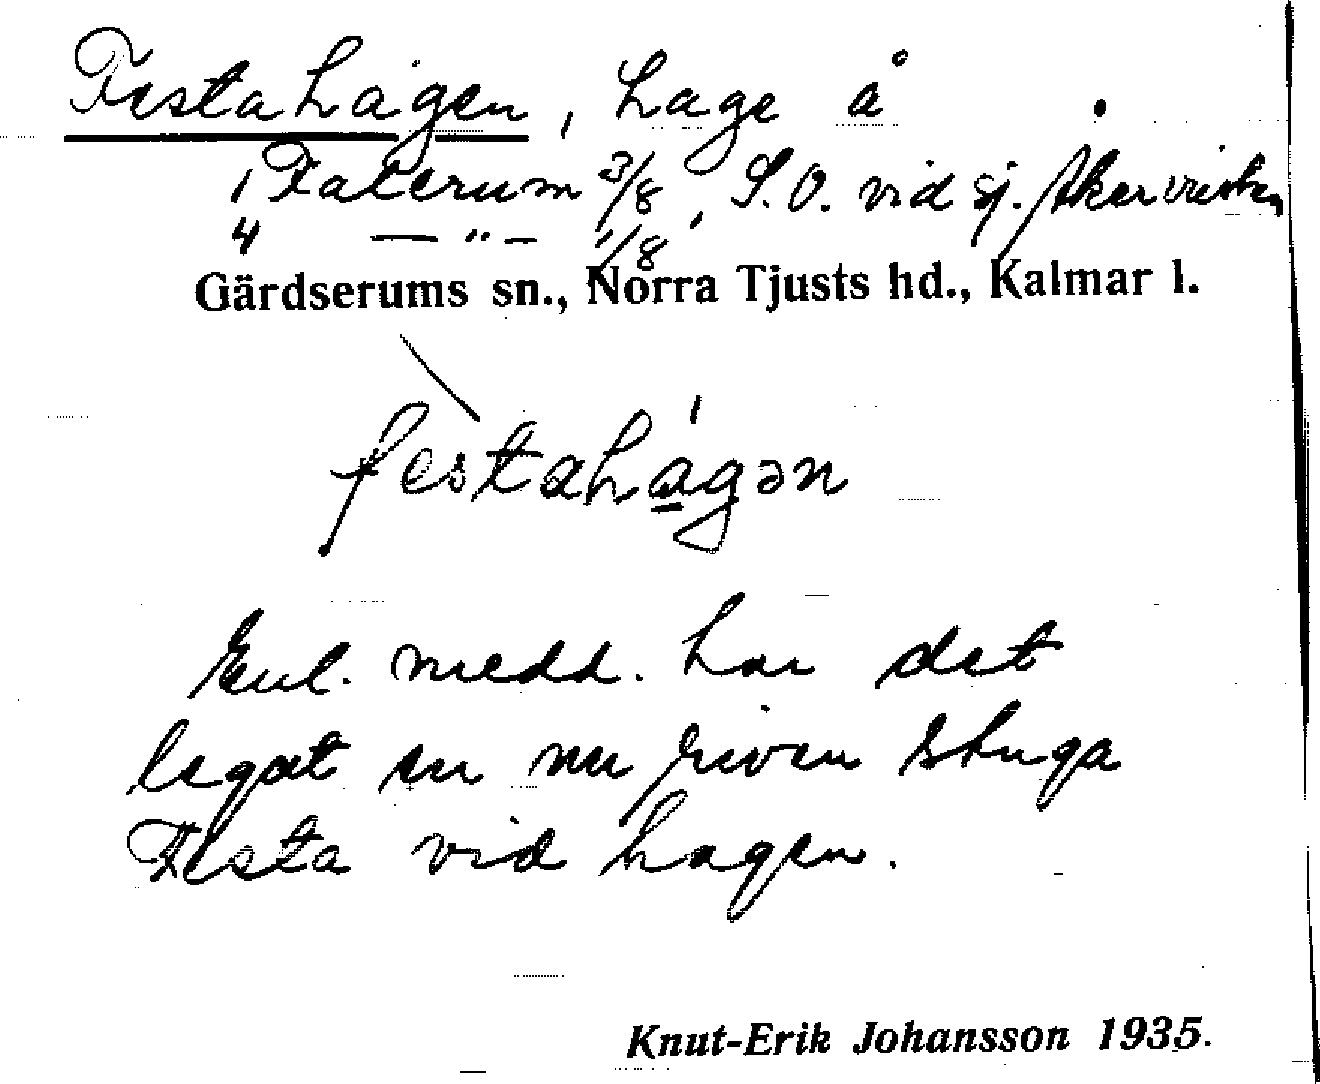 Festahagen, hage å
1 Faterum 3/8, S.O. vid sj. Åkervristen
4 — " — 1/8
Gärdserums sn., Norra Tjusts hd., Kalmar l.
festahágən
Enl. medd. har det
legat en nu riven stuga
Festa vid hagen.
Knut-Erik Johansson 1935.